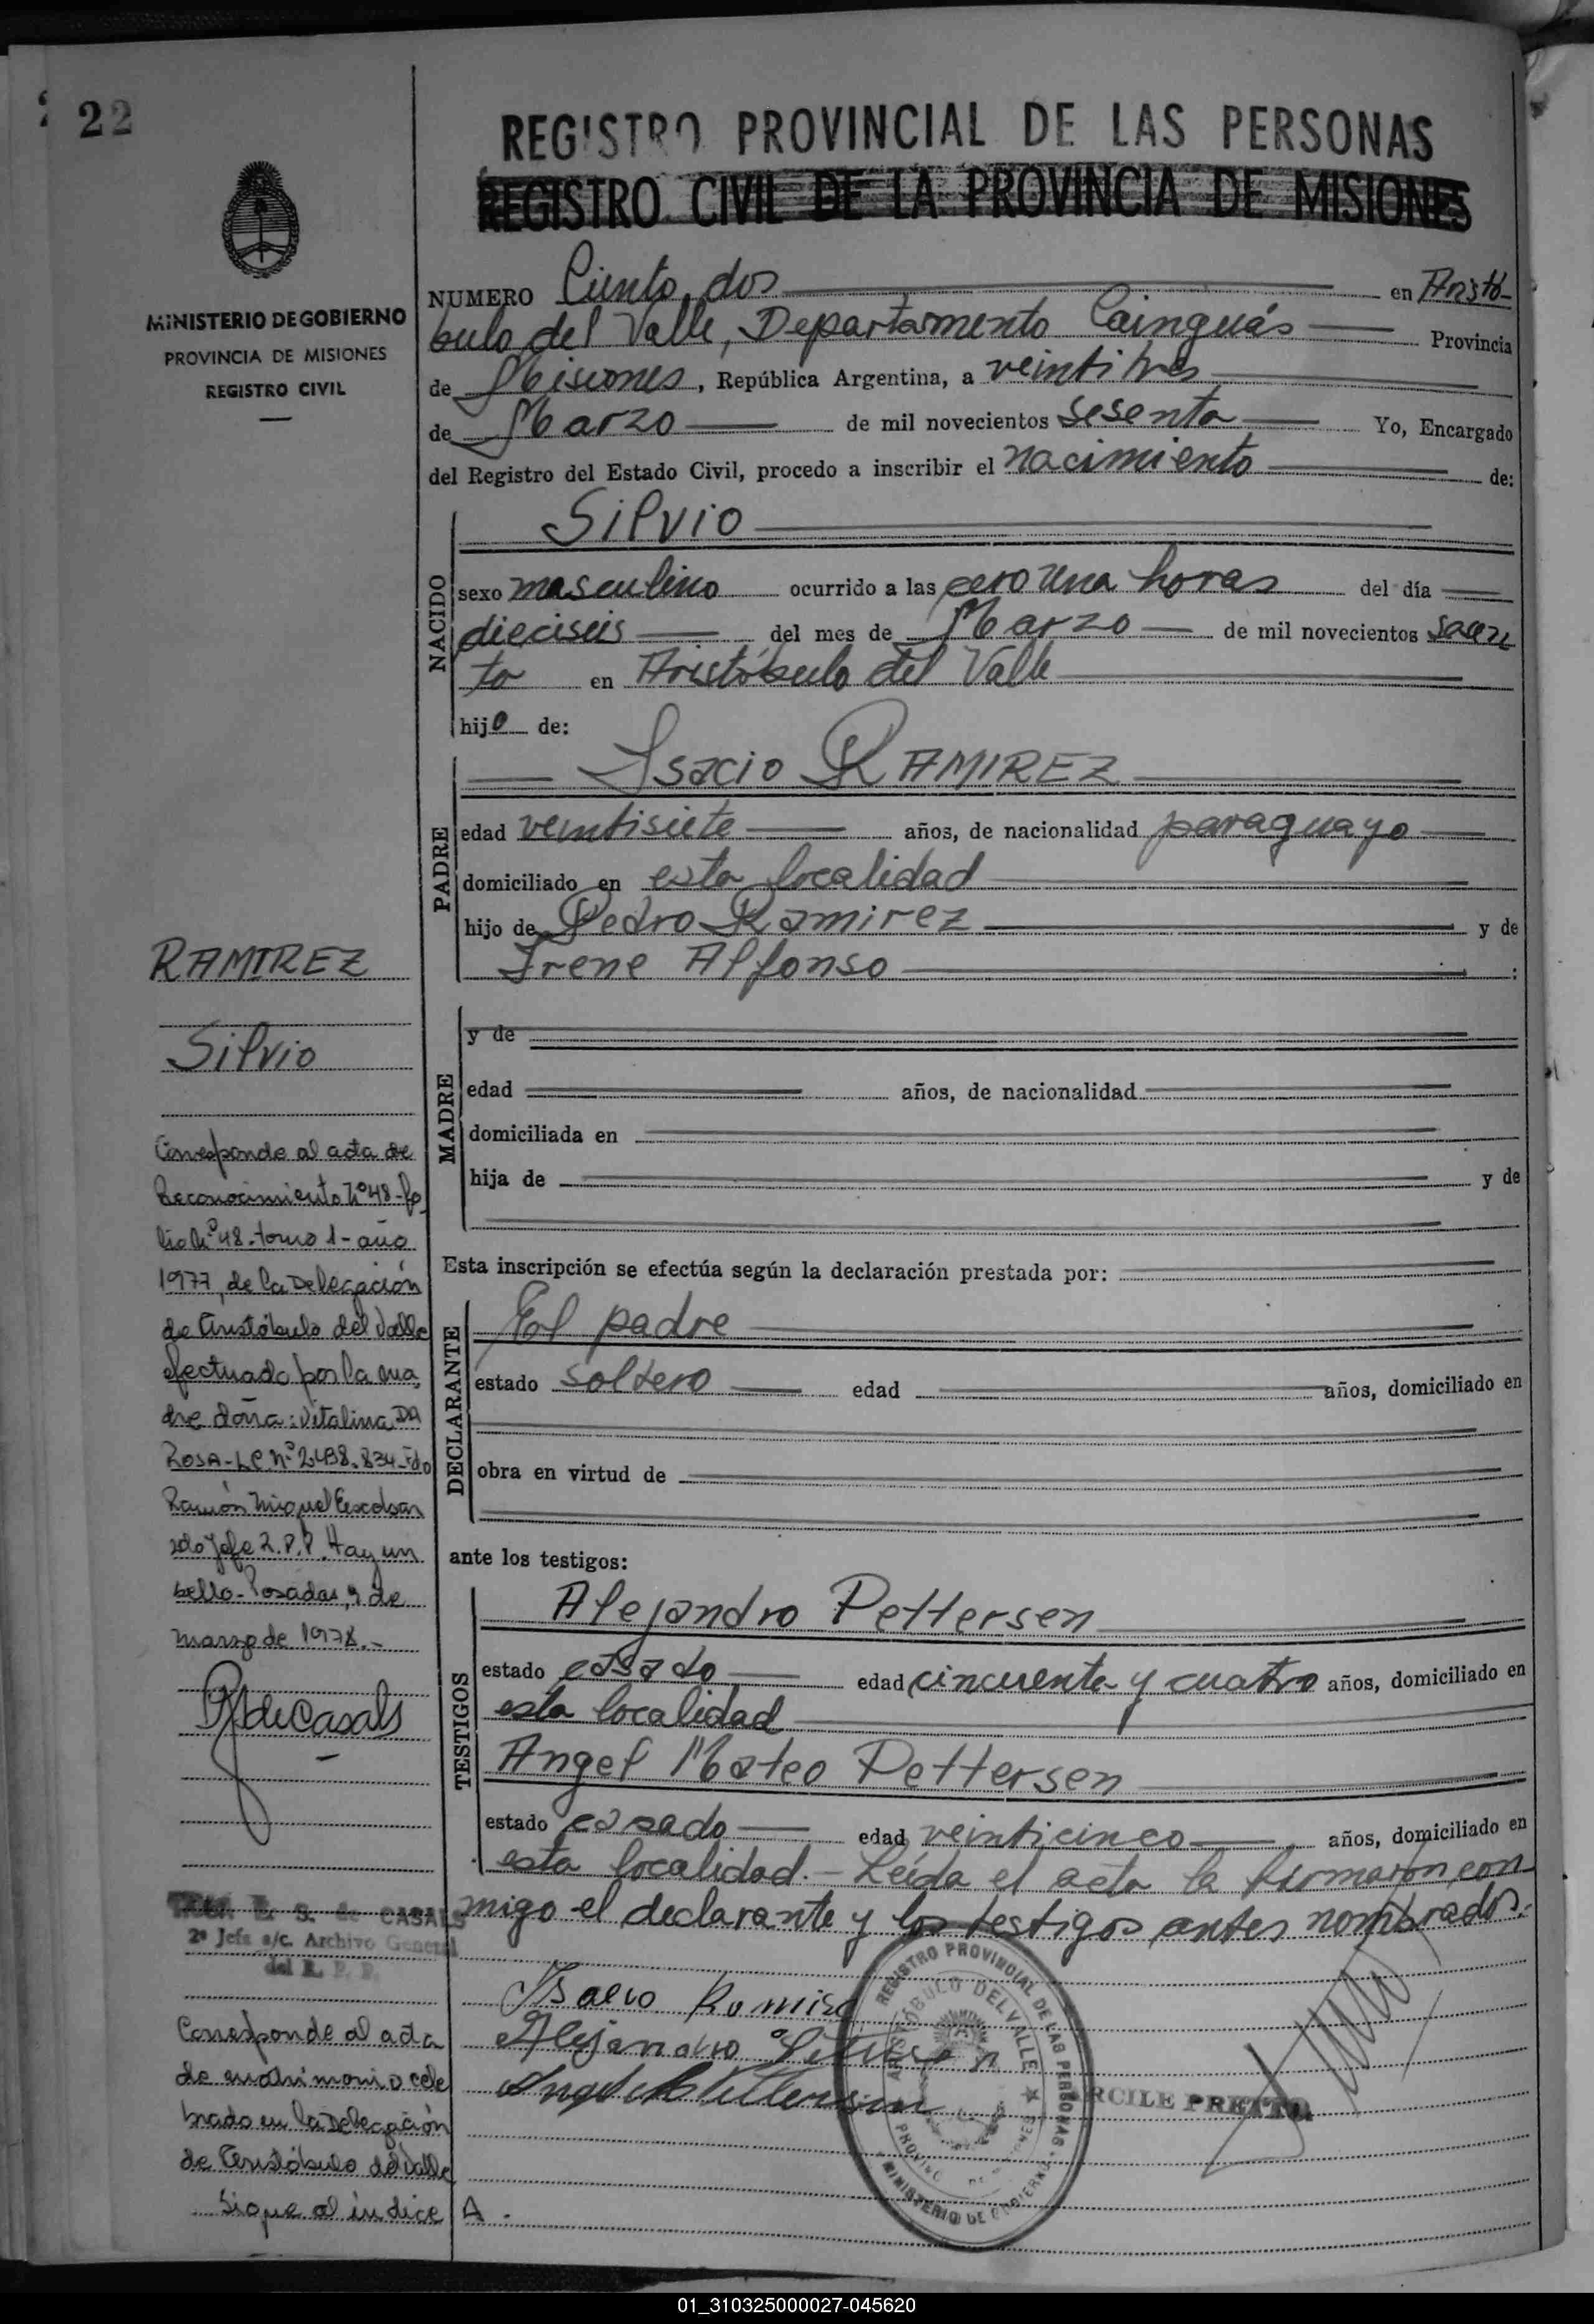 22
REGISTRO PROVINCIAL DE LAS PERSONAS
REGISTRO CIVIL DE LA PROVINCIA DE MISIONES
MINISTERIO DE GOBIERNO
PROVINCIA DE MISIONES
REGISTRO CIVIL
NUMERO Ciento dos en Aristó-
bulo del Valle, Departamento Cainguás Provincia
de Misiones, República Argentina, a veintitres
de Marzo de mil novecientos sesenta Yo, Encargado
del Registro del Estado Civil, procedo a inscribir el nacimiento de:
NACIDO
Silvio
sexo masculino ocurrido a las cero una horas del día
dieciseis del mes de Marzo de mil novecientos sesen
ta en Aristóbulo del Valle
hijo de:
PADRE
Isacio RAMIREZ
edad veintisiete años, de nacionalidad paraguayo
domiciliado en esta localidad
hijo de Pedro Ramirez y de
Irene Alfonso :
MADRE
y de
edad años, de nacionalidad
domiciliada en
hija de y de
Esta inscripción se efectúa según la declaración prestada por:
DECLARANTE
El padre
estado soltero edad años, domiciliado en
obra en virtud de
ante los testigos:
TESTIGOS
Alejandro Pettersen
estado casado edad cincuenta y cuatro años, domiciliado en
esta localidad
Angel Mateo Pettersen
estado casado edad veinticinco años, domiciliado en
esta localidad.- Leída el acta la firmaron con
migo el declarante y los testigos antes nombrados.
Isacio Ramire
Alejandro
REGISTRO PROVINCIAL DE LAS PERSONAS
ARISTÓBULO DEL VALLE
MINISTERIO DE GOBIERNO
ARCILE PRETTO
RAMIREZ
Silvio
Corresponde al acta de
Reconocimiento Nº 48-fo
lio Nº 48-tomo 1-año
1977, de la Delegación
de Aristóbulo del Valle
efectuado por la ma
dre doña: Vitalina DA
ROSA-LC Nº 2.498.834-Fdo
Ramón Miguel
Jefe R.P.P. Hay un
sello-Posadas, 9 de
marzo de 1978.-
de Casals
E. S. de CASALS
2º Jefa a/c. Archivo General
del R. P. P.
Corresponde al acta
de matrimonio cele
brado en la Delegación
de Aristóbulo del Valle
Sigue al índice A.
01_310325000027-045620